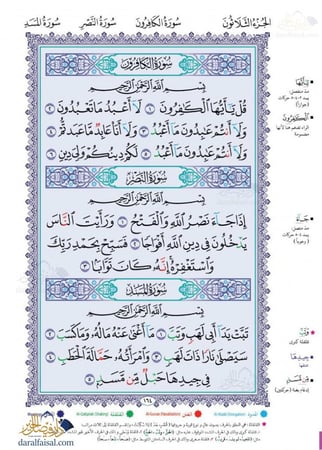 الجزء الثلاثون سورة الكافرون سورة النصر سورة المسد
سُورَةُ الكَافِرُونَ
بِسْمِ اللَّهِ الرَّحْمَٰنِ الرَّحِيمِ
قُلْ يَٰٓأَيُّهَا ٱلْكَٰفِرُونَ ١ لَآ أَعْبُدُ مَا تَعْبُدُونَ ٢
وَلَآ أَنتُمْ عَٰبِدُونَ مَآ أَعْبُدُ ٣ وَلَآ أَنَا۠ عَابِدٌ مَّا عَبَدتُّمْ ٤
وَلَآ أَنتُمْ عَٰبِدُونَ مَآ أَعْبُدُ ٥ لَكُمْ دِينُكُمْ وَلِيَ دِينِ ٦
سُورَةُ النَّصْرِ
بِسْمِ اللَّهِ الرَّحْمَٰنِ الرَّحِيمِ
إِذَا جَآءَ نَصْرُ ٱللَّهِ وَٱلْفَتْحُ ١ وَرَأَيْتَ ٱلنَّاسَ
يَدْخُلُونَ فِى دِينِ ٱللَّهِ أَفْوَاجًا ٢ فَسَبِّحْ بِحَمْدِ رَبِّكَ
وَٱسْتَغْفِرْهُ إِنَّهُۥ كَانَ تَوَّابًۢا ٣
سُورَةُ المَسَدِ
بِسْمِ اللَّهِ الرَّحْمَٰنِ الرَّحِيمِ
تَبَّتْ يَدَآ أَبِى لَهَبٍ وَتَبَّ ١ مَآ أَغْنَىٰ عَنْهُ مَالُهُۥ وَمَا كَسَبَ ٢
سَيَصْلَىٰ نَارًا ذَاتَ لَهَبٍ ٣ وَٱمْرَأَتُهُۥ حَمَّالَةَ ٱلْحَطَبِ ٤
فِى جِيدِهَا حَبْلٌ مِّن مَّسَدٍۭ ٥
يَٰٓأَيُّهَا
مد منفصل
ٱلْكَٰفِرُونَ
جَآءَ
مد متصل
وَتَبَّ
قلقلة كبرى
جِيدِهَا
مِّن مَّسَدٍ
daralfaisal.com